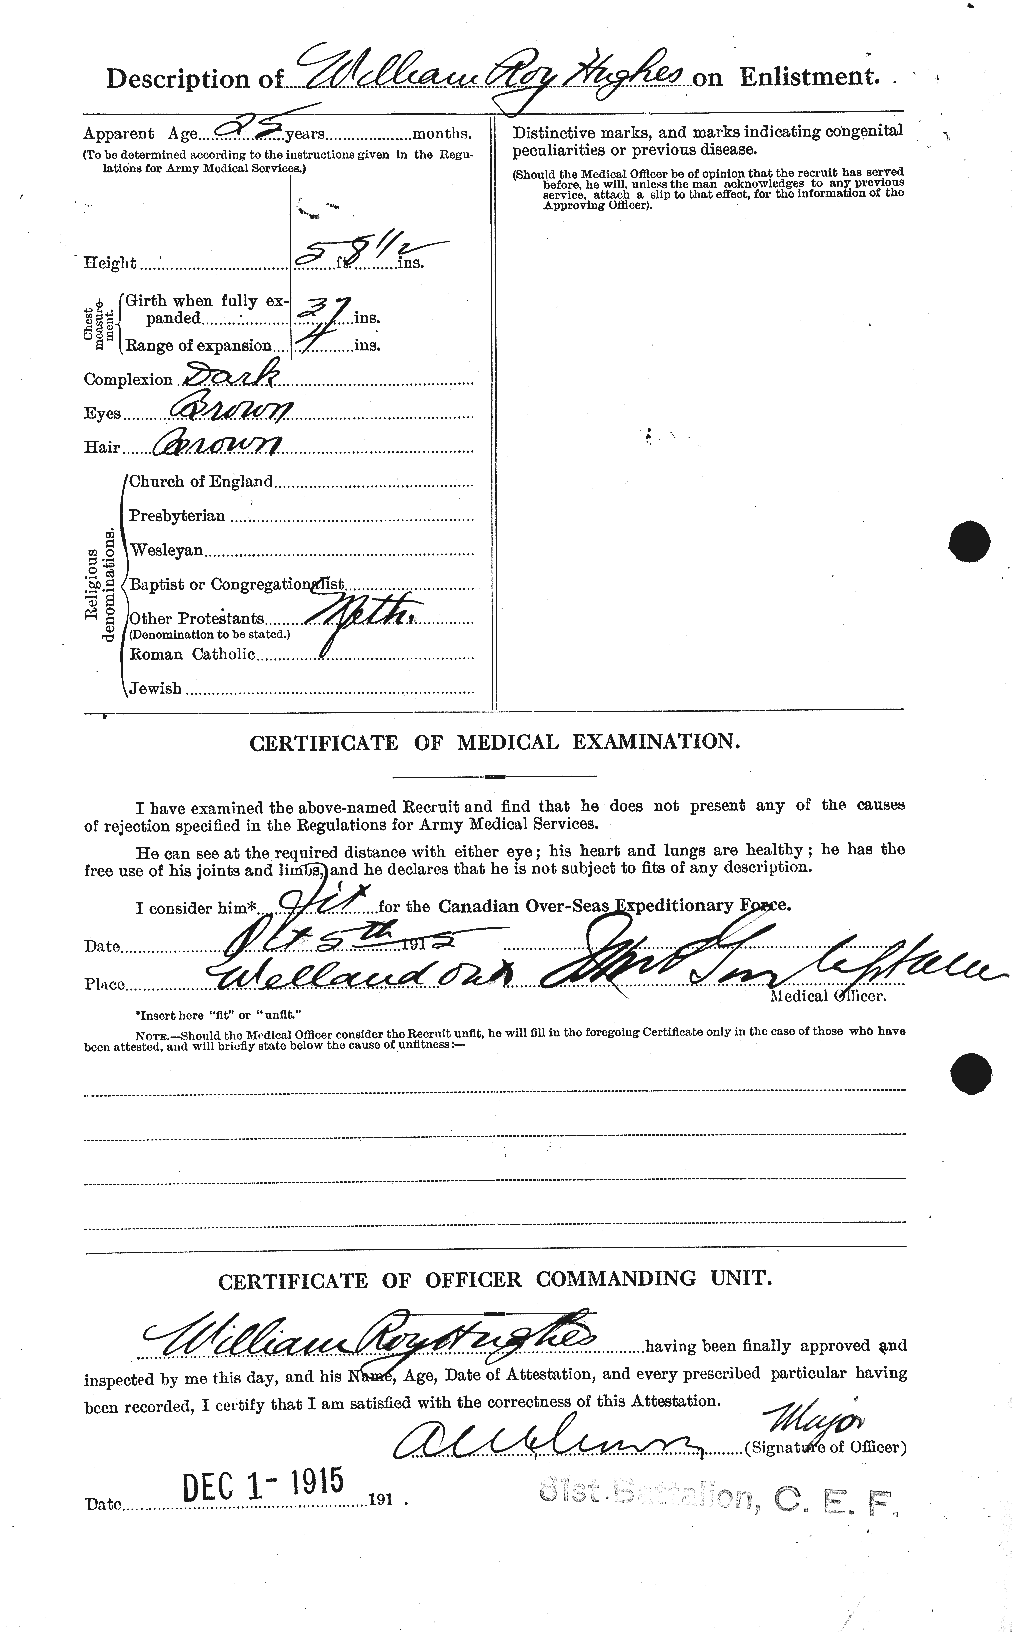 Description of William Roy Hughes on Enlistment.
Apparent Age 25 years months.
(To be determined according to the instructions given in the Regu-
lations for Army Medical Services.)
Height 5 ft. 8 1/2 ins.
Chest measure-ment.
Girth when fully ex-
panded 37 ins.
Range of expansion 4 ins.
Complexion Dark
Eyes Brown
Hair Brown
Religious denominations.
Church of England
Presbyterian
Wesleyan
Baptist or Congregationalist
Other Protestants Meth.
(Denomination to be stated.)
Roman Catholic
Jewish
Distinctive marks, and marks indicating congenital
peculiarities or previous disease.
(Should the Medical Officer be of opinion that the recruit has served
before, he will, unless the man acknowledges to any previous
service, attach a slip to that effect, for the information of the
Approving Officer).
CERTIFICATE OF MEDICAL EXAMINATION.
I have examined the above-named Recruit and find that he does not present any of the causes
of rejection specified in the Regulations for Army Medical Services.
He can see at the required distance with either eye; his heart and lungs are healthy; he has the
free use of his joints and limbs, and he declares that he is not subject to fits of any description.
I consider him* fit for the Canadian Over-Seas Expeditionary Force.
Date Oct 5th 1915
Place Welland Ont
Medical Officer.
*Insert here "fit" or "unfit."
NOTE.—Should the Medical Officer consider the Recruit unfit, he will fill in the foregoing Certificate only in the case of those who have
been attested, and will briefly state below the cause of unfitness:—
CERTIFICATE OF OFFICER COMMANDING UNIT.
William Roy Hughes having been finally approved and
inspected by me this day, and his Name, Age, Date of Attestation, and every prescribed particular having
been recorded, I certify that I am satisfied with the correctness of this Attestation.
Major
(Signature of Officer)
Date DEC 1- 1915 191 .
81st Battalion, C. E. F.